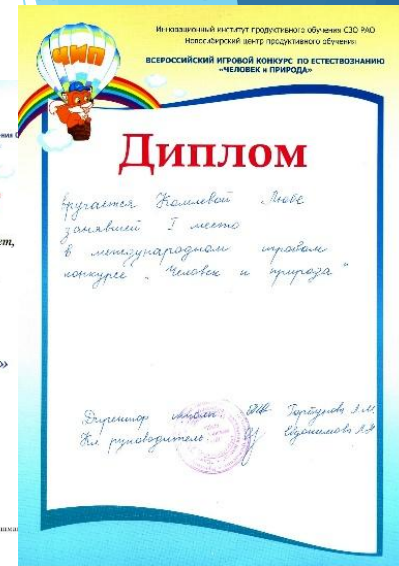 Инновационный институт продуктивного обучения СЗО РАО
Новосибирский центр продуктивного обучения
ВСЕРОССИЙСКИЙ ИГРОВОЙ КОНКУРС ПО ЕСТЕСТВОЗНАНИЮ
«ЧЕЛОВЕК и ПРИРОДА»
ЧИП
Диплом
вручается Любе
занявшей I место
в международном игровом
конкурсе „Человек и природа“
Директор школы
Кл. руководитель